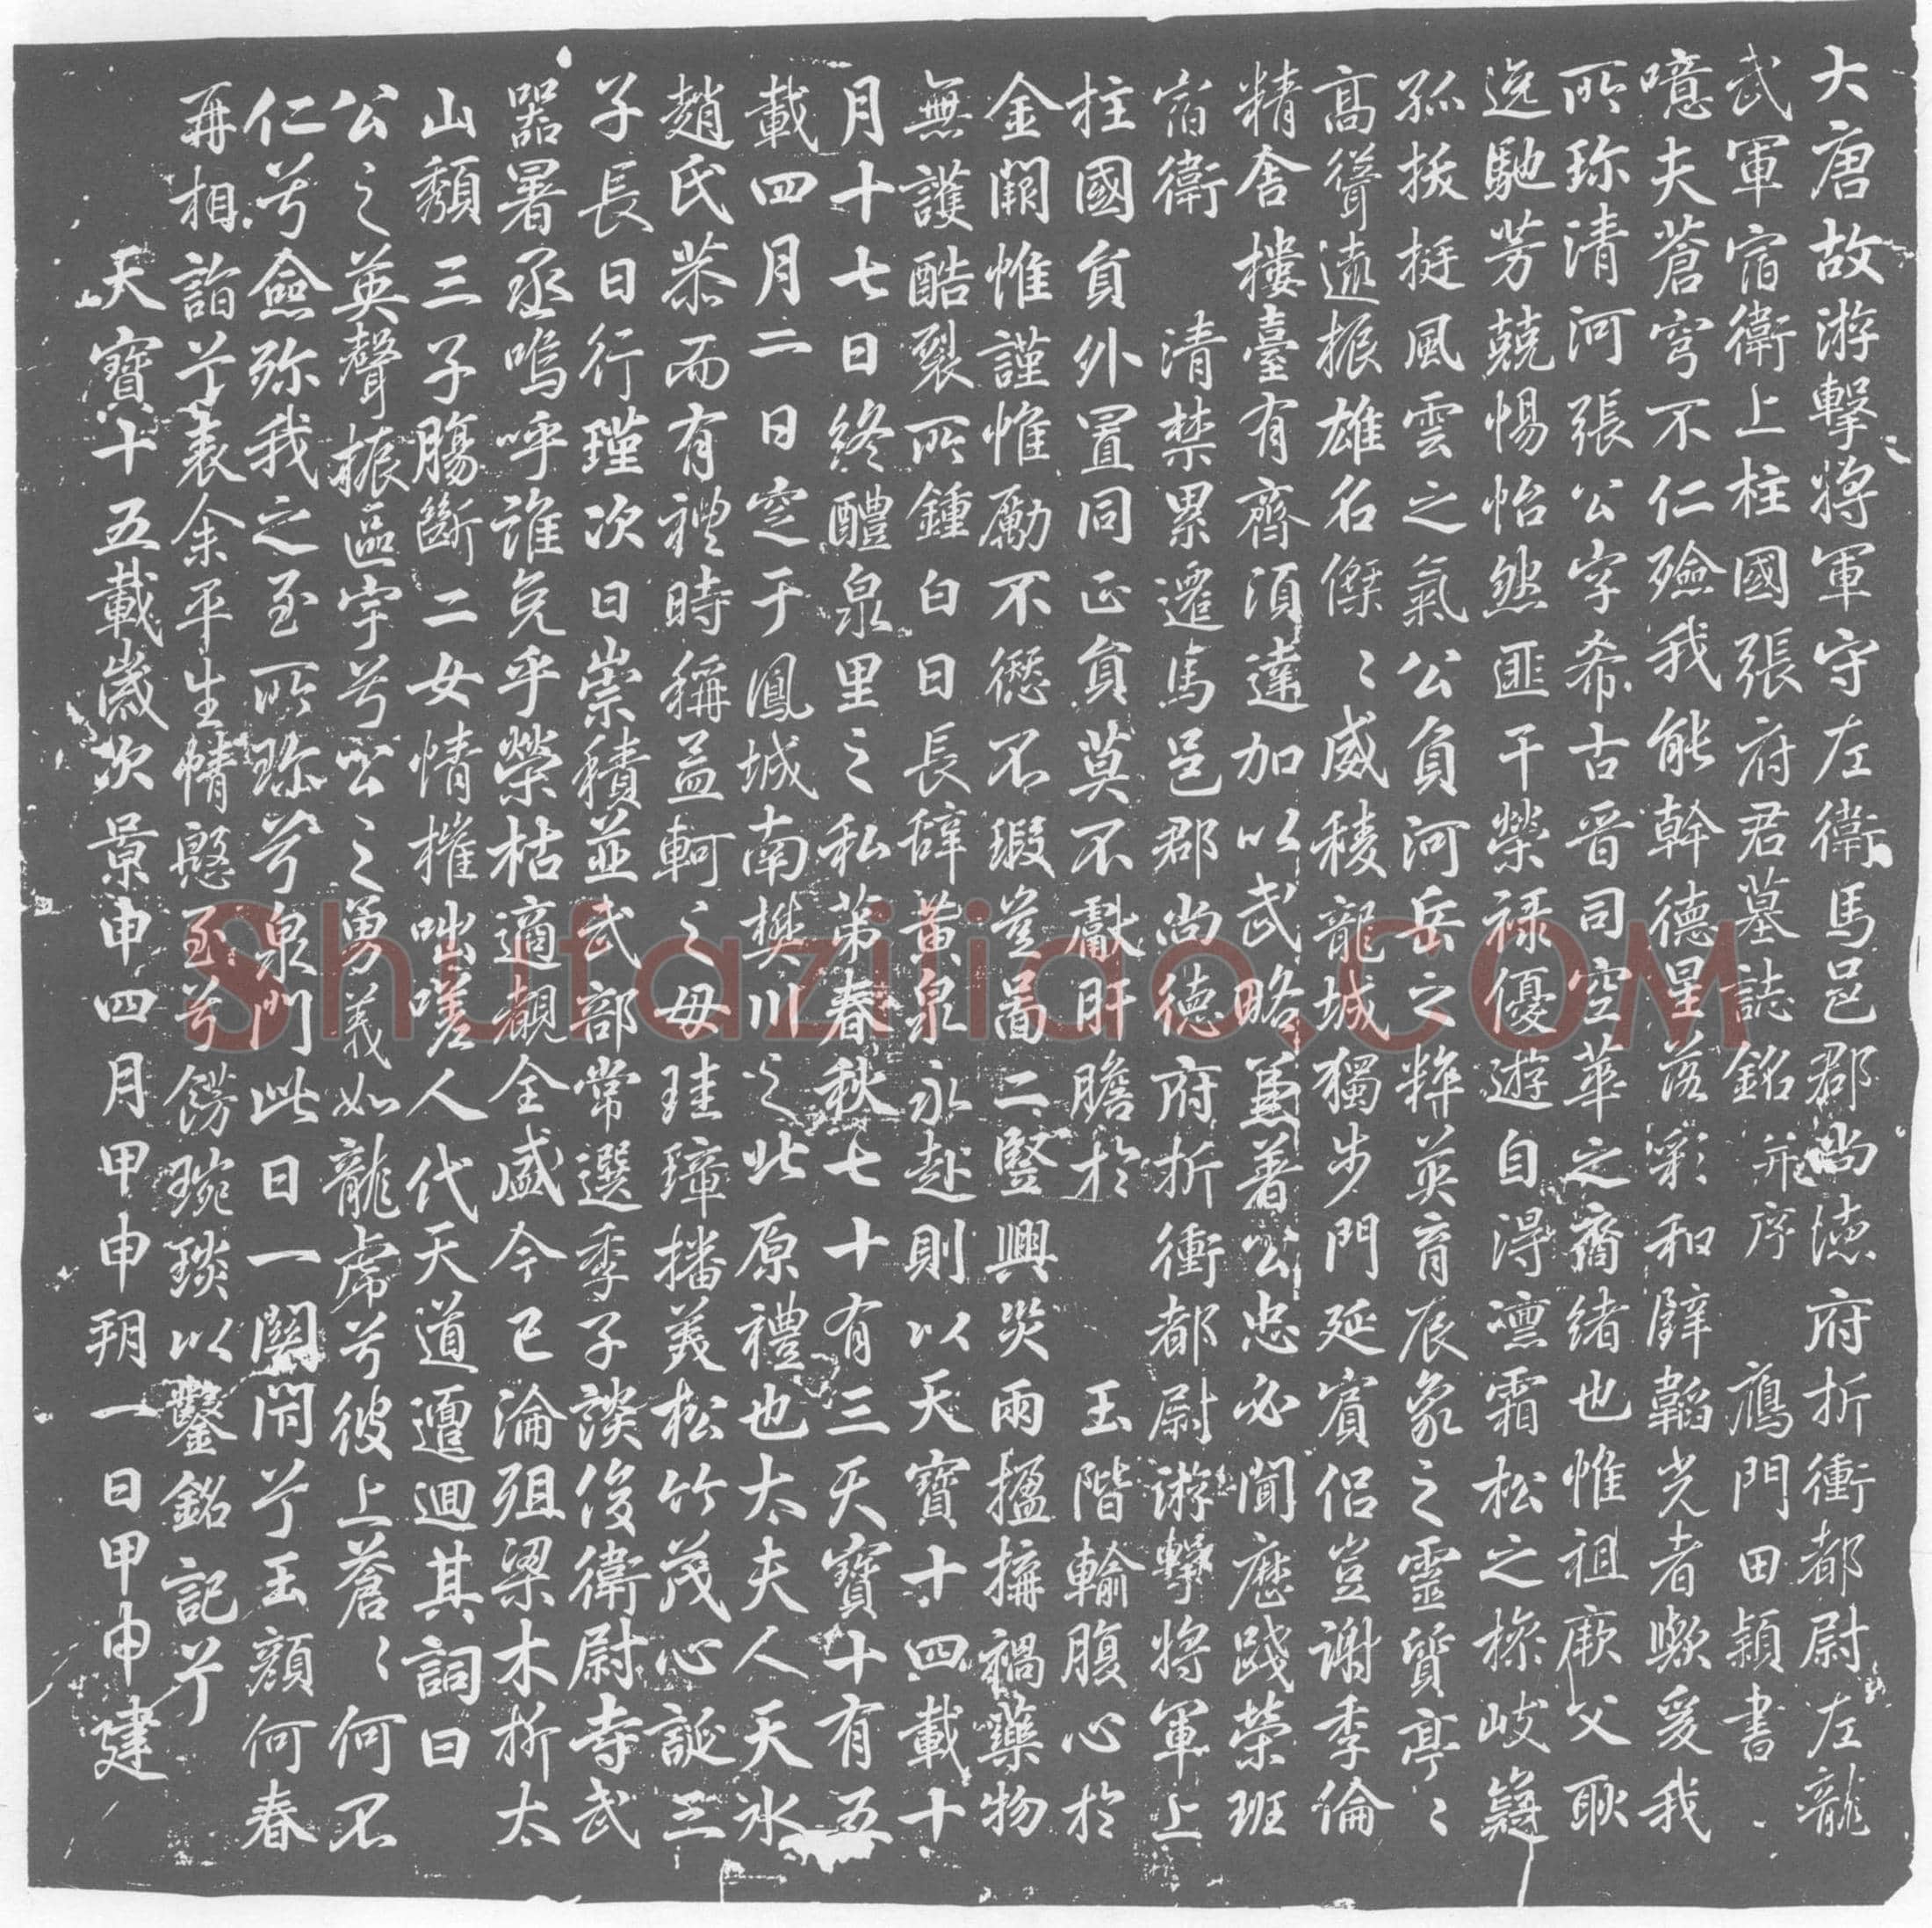 大唐故游擊將軍守左衛馬邑郡尚德府折衝都尉左龍
武軍宿衛上柱國張府君墓誌銘 并序 鴈門田穎書
噫夫蒼穹不仁殮我能幹德星落彩和璧韜光者歟爰我
所珎清河張公字希古晉司空華之裔緒也惟祖厥父耿
逸馳芳兢惕怡然匪干榮祿優遊自得凛霜松之操岐嶷
孤拔挺風雲之氣公負河岳之粹英育辰象之靈質亭〻
高聳遠振雄名傑〻威稜龍城獨步門延賓侶豈謝季倫
精舍樓臺有齊須達加以武略萬著公忠必聞歷踐榮班
宿衛 清禁累遷馬邑郡尚德府折衝都尉游擊將軍上
柱國員外置同正員莫不獻肝膽於 玉階輸腹心於
金闕惟謹惟勵不愆不瑕豈啚二豎興災兩楹構禍藥物
無護酷裂所鍾白日長辞黃泉永赴則以天寶十四載十
月十七日終醴泉里之私第春秋七十有三天寶十有五
載四月二日窆于鳳城南樊川之北原禮也太夫人天水
趙氏恭而有禮時稱益軻之母珪璋播美松竹茂心誕三
子長曰行瑾次曰崇積並武部常選季子談俊衛尉寺武
器署丞嗚呼誰免乎榮枯適覩全盛今已淪殂梁木折太
山頹三子腸斷二女情摧咄嗟人代天道邅迴其詞曰
公之英聲振區宇兮公之勇義如龍虎兮彼上蒼〻何不
仁兮僉弥我之至所珎兮泉門此日一關閇兮玉顏何春
再相詣兮表余平生情慇至兮鎸琬琰以鑿銘記兮
天寶十五載歲次景申四月甲申朔一日甲申建
Shufaziliao.COM